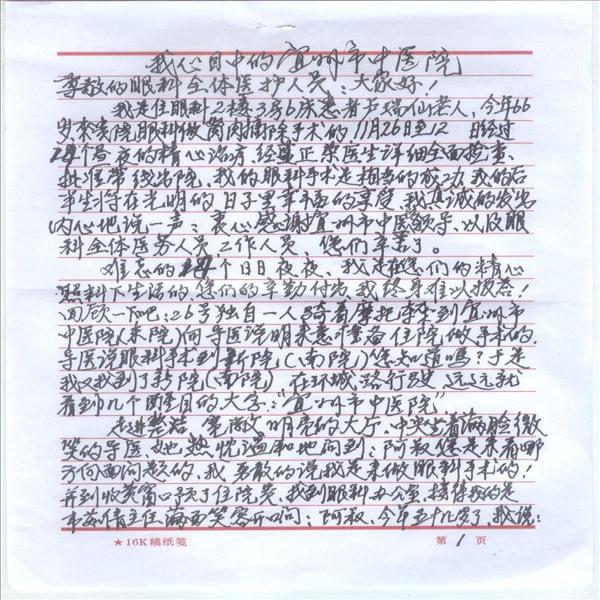 我心目中的宜州市中医院
尊敬的眼科全体医护人员：大家好！
我是住眼科2楼3房6床患者韦瑞仙老人，今年66
岁来贵院眼科做翼肉摘除手术的11月26日至12日经过
个昼夜的精心治疗，经盛正荣医生详细全面检查、
批准带线出院，我的眼科手术是相当的成功，我的后
半生将在光明的日子里幸福的享受，我真诚的发出
内心地说一声：衷心感谢宜州市中医领导、以及眼
科全体医务人员工作人员，您们辛苦了。
难忘的个日日夜夜、我是在您们的精心
照料下生活的，您们的辛勤付出我终身难以报答！
回顾一下吧：26号独自一人骑着摩托车来到宜州市
中医院（本院）向导医说明来意准备住院做手术的，
导医说眼科手术到新院（城南院）您知道吗？于是
我又找到了新院（城南院），在环城路行驶，远远就
看到几个醒目的大字：“宜州市中医院”。
走进整洁、宽敞、明亮的大厅，中央坐着满脸微
笑的导医，她热忱温和地问到：阿叔您是来看哪
方向面问题的，我勇敢的说我是来做眼科手术的！
并到收费窗口预了住院费，找到眼科办公室，接待我的是
韦倩主任满面笑容开口问：阿叔，今年五十几岁了，我说：
★16K稿纸笺 第1页